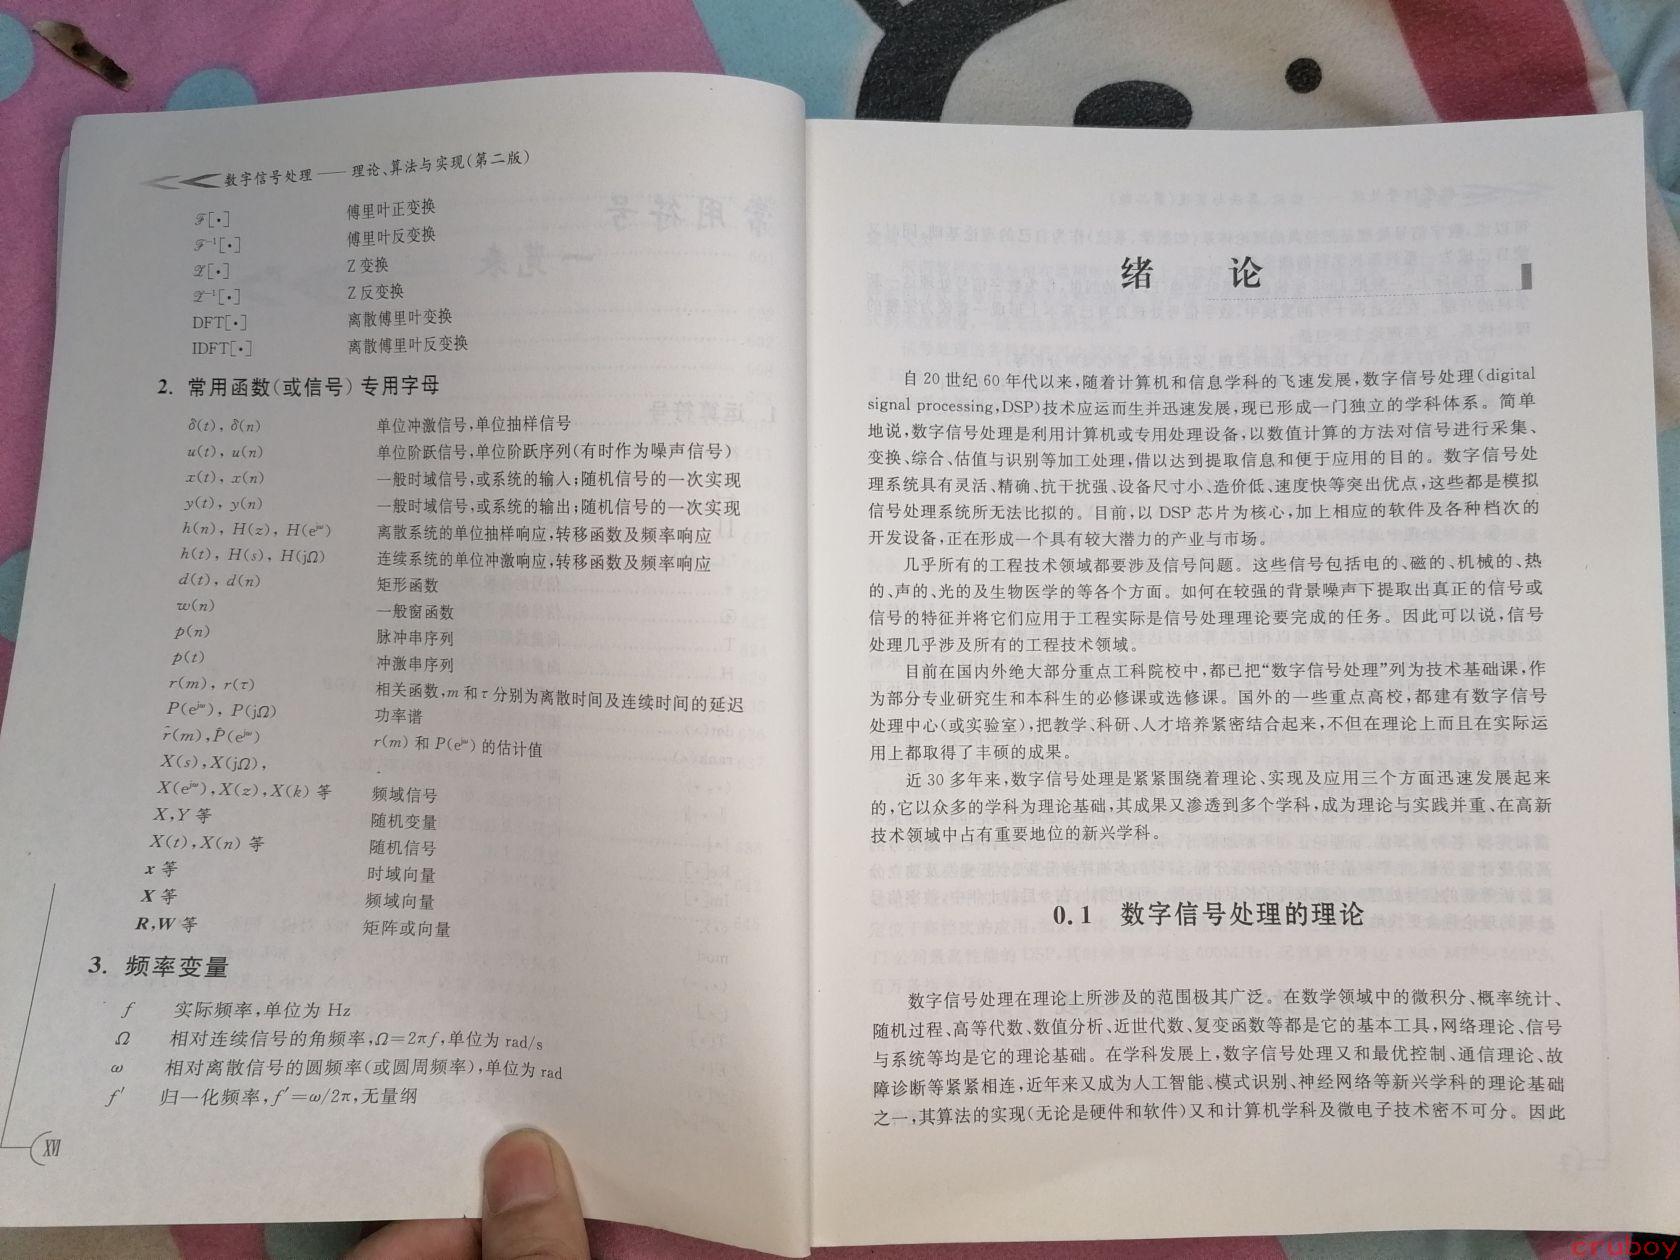 数字信号处理——理论、算法与实现(第二版)
ℱ[·] 傅里叶正变换
ℱ⁻¹[·] 傅里叶反变换
𝒵[·] Z 变换
𝒵⁻¹[·] Z 反变换
DFT[·] 离散傅里叶变换
IDFT[·] 离散傅里叶反变换
2. 常用函数(或信号)专用字母
δ(t), δ(n) 单位冲激信号,单位抽样信号
u(t), u(n) 单位阶跃信号,单位阶跃序列(有时作为噪声信号)
x(t), x(n) 一般时域信号,或系统的输入;随机信号的一次实现
y(t), y(n) 一般时域信号,或系统的输出;随机信号的一次实现
h(n), H(z), H(e^{jω}) 离散系统的单位抽样响应,转移函数及频率响应
h(t), H(s), H(jΩ) 连续系统的单位冲激响应,转移函数及频率响应
d(t), d(n) 矩形函数
w(n) 一般窗函数
p(n) 脉冲串序列
p(t) 冲激串序列
r(m), r(τ) 相关函数,m 和 τ 分别为离散时间及连续时间的延迟
P(e^{jω}), P(jΩ) 功率谱
r̂(m),P̂(e^{jω}) r(m) 和 P(e^{jω}) 的估计值
X(s),X(jΩ),
X(e^{jω}),X(z),X(k) 等 频域信号
X,Y 等 随机变量
X(t),X(n) 等 随机信号
x 等 时域向量
X 等 频域向量
R,W 等 矩阵或向量
3. 频率变量
f 实际频率,单位为 Hz
Ω 相对连续信号的角频率,Ω=2πf,单位为 rad/s
ω 相对离散信号的圆频率(或圆周频率),单位为 rad
f′ 归一化频率,f′=ω/2π,无量纲
XVI
绪 论
自 20 世纪 60 年代以来,随着计算机和信息学科的飞速发展,数字信号处理(digital
signal processing,DSP)技术应运而生并迅速发展,现已形成一门独立的学科体系。简单
地说,数字信号处理是利用计算机或专用处理设备,以数值计算的方法对信号进行采集、
变换、综合、估值与识别等加工处理,借以达到提取信息和便于应用的目的。数字信号处
理系统具有灵活、精确、抗干扰强、设备尺寸小、造价低、速度快等突出优点,这些都是模拟
信号处理系统所无法比拟的。目前,以 DSP 芯片为核心,加上相应的软件及各种档次的
开发设备,正在形成一个具有较大潜力的产业与市场。
几乎所有的工程技术领域都要涉及信号问题。这些信号包括电的、磁的、机械的、热
的、声的、光的及生物医学的等各个方面。如何在较强的背景噪声下提取出真正的信号或
信号的特征并将它们应用于工程实际是信号处理理论要完成的任务。因此可以说,信号
处理几乎涉及所有的工程技术领域。
目前在国内外绝大部分重点工科院校中,都已把“数字信号处理”列为技术基础课,作
为部分专业研究生和本科生的必修课或选修课。国外的一些重点高校,都建有数字信号
处理中心(或实验室),把教学、科研、人才培养紧密结合起来,不但在理论上而且在实际运
用上都取得了丰硕的成果。
近 30 多年来,数字信号处理是紧紧围绕着理论、实现及应用三个方面迅速发展起来
的,它以众多的学科为理论基础,其成果又渗透到多个学科,成为理论与实践并重、在高新
技术领域中占有重要地位的新兴学科。
0.1 数字信号处理的理论
数字信号处理在理论上所涉及的范围极其广泛。在数学领域中的微积分、概率统计、
随机过程、高等代数、数值分析、近世代数、复变函数等都是它的基本工具,网络理论、信号
与系统等均是它的理论基础。在学科发展上,数字信号处理又和最优控制、通信理论、故
障诊断等紧紧相连,近年来又成为人工智能、模式识别、神经网络等新兴学科的理论基础
之一,其算法的实现(无论是硬件和软件)又和计算机学科及微电子技术密不可分。因此
cruboy